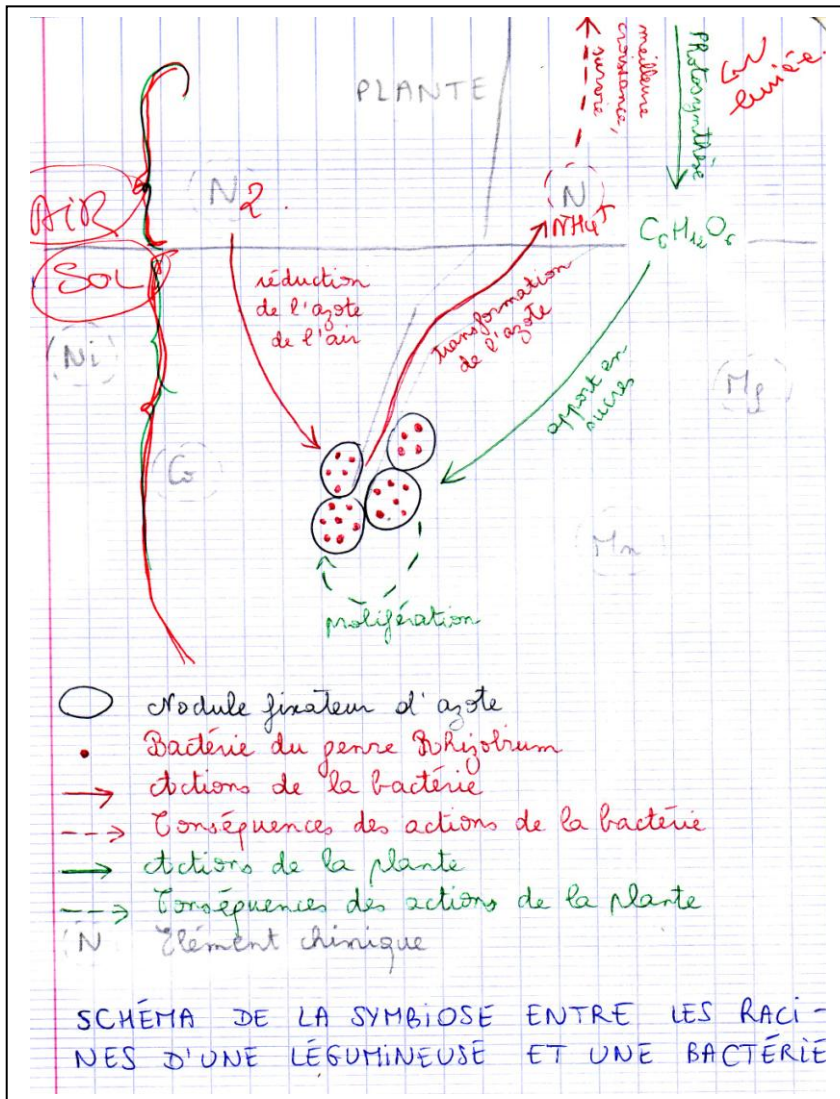 PLANTE
meilleure
croissance,
survie
PHotosynthèse
AiR
N2.
N
NH4+
C6H12O6
SOL
réduction
de l'azote
de l'air
transformation
de l'azote
apport en
sucres
Ni
Mg
Co
Mn
prolifération
Nodule fixateur d'azote
Bactérie du genre Rhizobium
Actions de la bactérie
Conséquences des actions de la bactérie
Actions de la plante
Conséquences des actions de la plante
N Elément chimique
SCHÉMA DE LA SYMBIOSE ENTRE LES RACI-
NES D'UNE LÉGUMINEUSE ET UNE BACTÉRIE